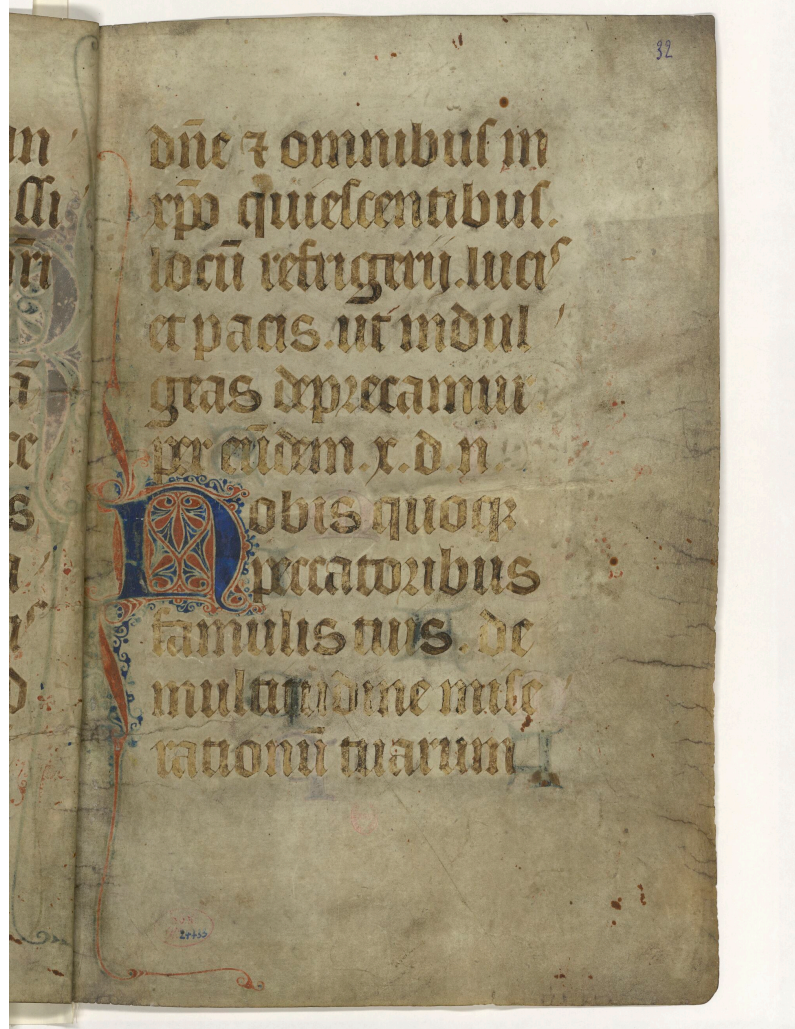 32
dn̄e ⁊ omnibuſ in
xp̄o quieſcentibuſ.
locū refrigerij.luciſ
et pacis.ut indul
geas deprecamur
per eūdem.x.d.n.
Nobis quoqꝫ
peccatoribus
famulis tuis.de
multitudine miſe
rationū tuarum